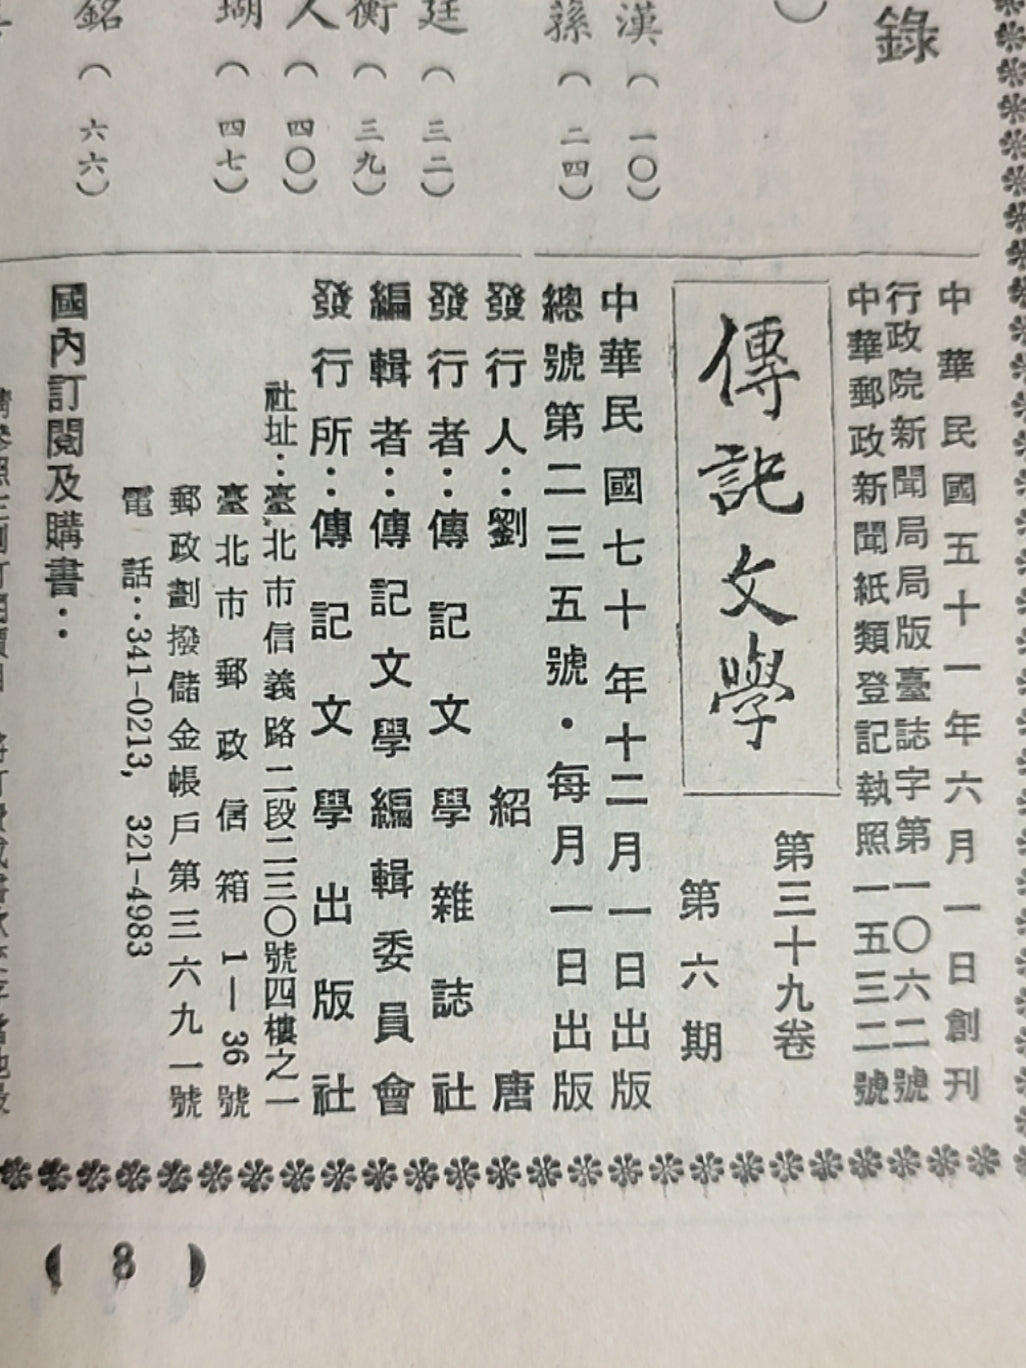 錄
漢(一〇)
蓀(二四)
廷(三二)
衡(三九)
人(四〇)
瑚(四七)
銘(六六)
中華民國五十一年六月一日創刊
行政院新聞局局版臺誌字第一〇六二號
中華郵政新聞紙類登記執照一五三二號
傳記文學
第三十九卷
第六期
中華民國七十年十二月一日出版
總號第二三五號・每月一日出版
發行人：劉紹唐
發行者：傳記文學雜誌社
編輯者：傳記文學編輯委員會
發行所：傳記文學出版社
社址：臺北市信義路二段二三〇號四樓之一
臺北市郵政信箱1—36號
郵政劃撥儲金帳戶第三六九一號
電話：341-0213, 321-4983
國內訂閱及購書：
( 8 )